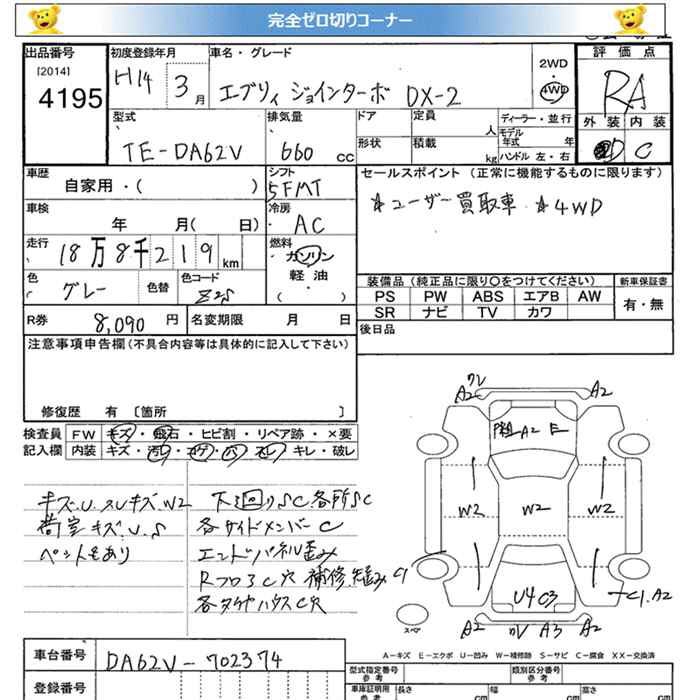 完全ゼロ切りコーナー
出品番号
[2014]
4195
初度登録年月
H14 3 月
車名・グレード
エブリィ ジョインターボ DX-2
2WD
4WD
評価点
RA
外装 内装
D C
型式
TE-DA62V
排気量
660 cc
ドア 定員 人
形状 積載 kg
ディーラー・並行
モデル年式 年
ハンドル 左・右
車歴
自家用・( )
シフト
5FMT
車検
年 月( 日)
冷房
AC
走行
18万8千219 km
燃料
ガソリン
軽油
( )
色
グレー
色替
色コード
Z2S
セールスポイント (正常に機能するものに限ります)
☆ユーザー買取車 ☆4WD
装備品 (純正品に限り○をつけてください)
PS PW ABS エアB AW
SR ナビ TV カワ
新車保証書
有・無
R券 8,090 円
名変期限 月 日
後日品
注意事項申告欄 (不具合内容等は具体的に記入して下さい)
修復歴 有 [箇所 ]
検査員 FW キズ・飛石・ヒビ割・リペア跡・×要
記入欄 内装 キズ・汚レ・コゲ・穴・スレ・キレ・破レ
キズ.U.スリキズ W2
荷室キズ.U.S
ペイントもあり
下廻りSC各所SC
各サイドメンバーC
エンドパネル歪み
RフロアC穴 補修歪み
各タイヤハウスC穴
A2 ワレ
A2
A2 E
W2
W2
W2
U4 C3
C1.A2
C1
スペア
A2
A3 A2
A-キズ E-エクボ U-凹み W-補修跡 S-サビ C-腐食 XX-交換済
車台番号
DA62V-702374
登録番号
型式指定番号
参考
類別区分番号
参考
車庫証明用
参考
長さ cm
幅 cm
高さ cm